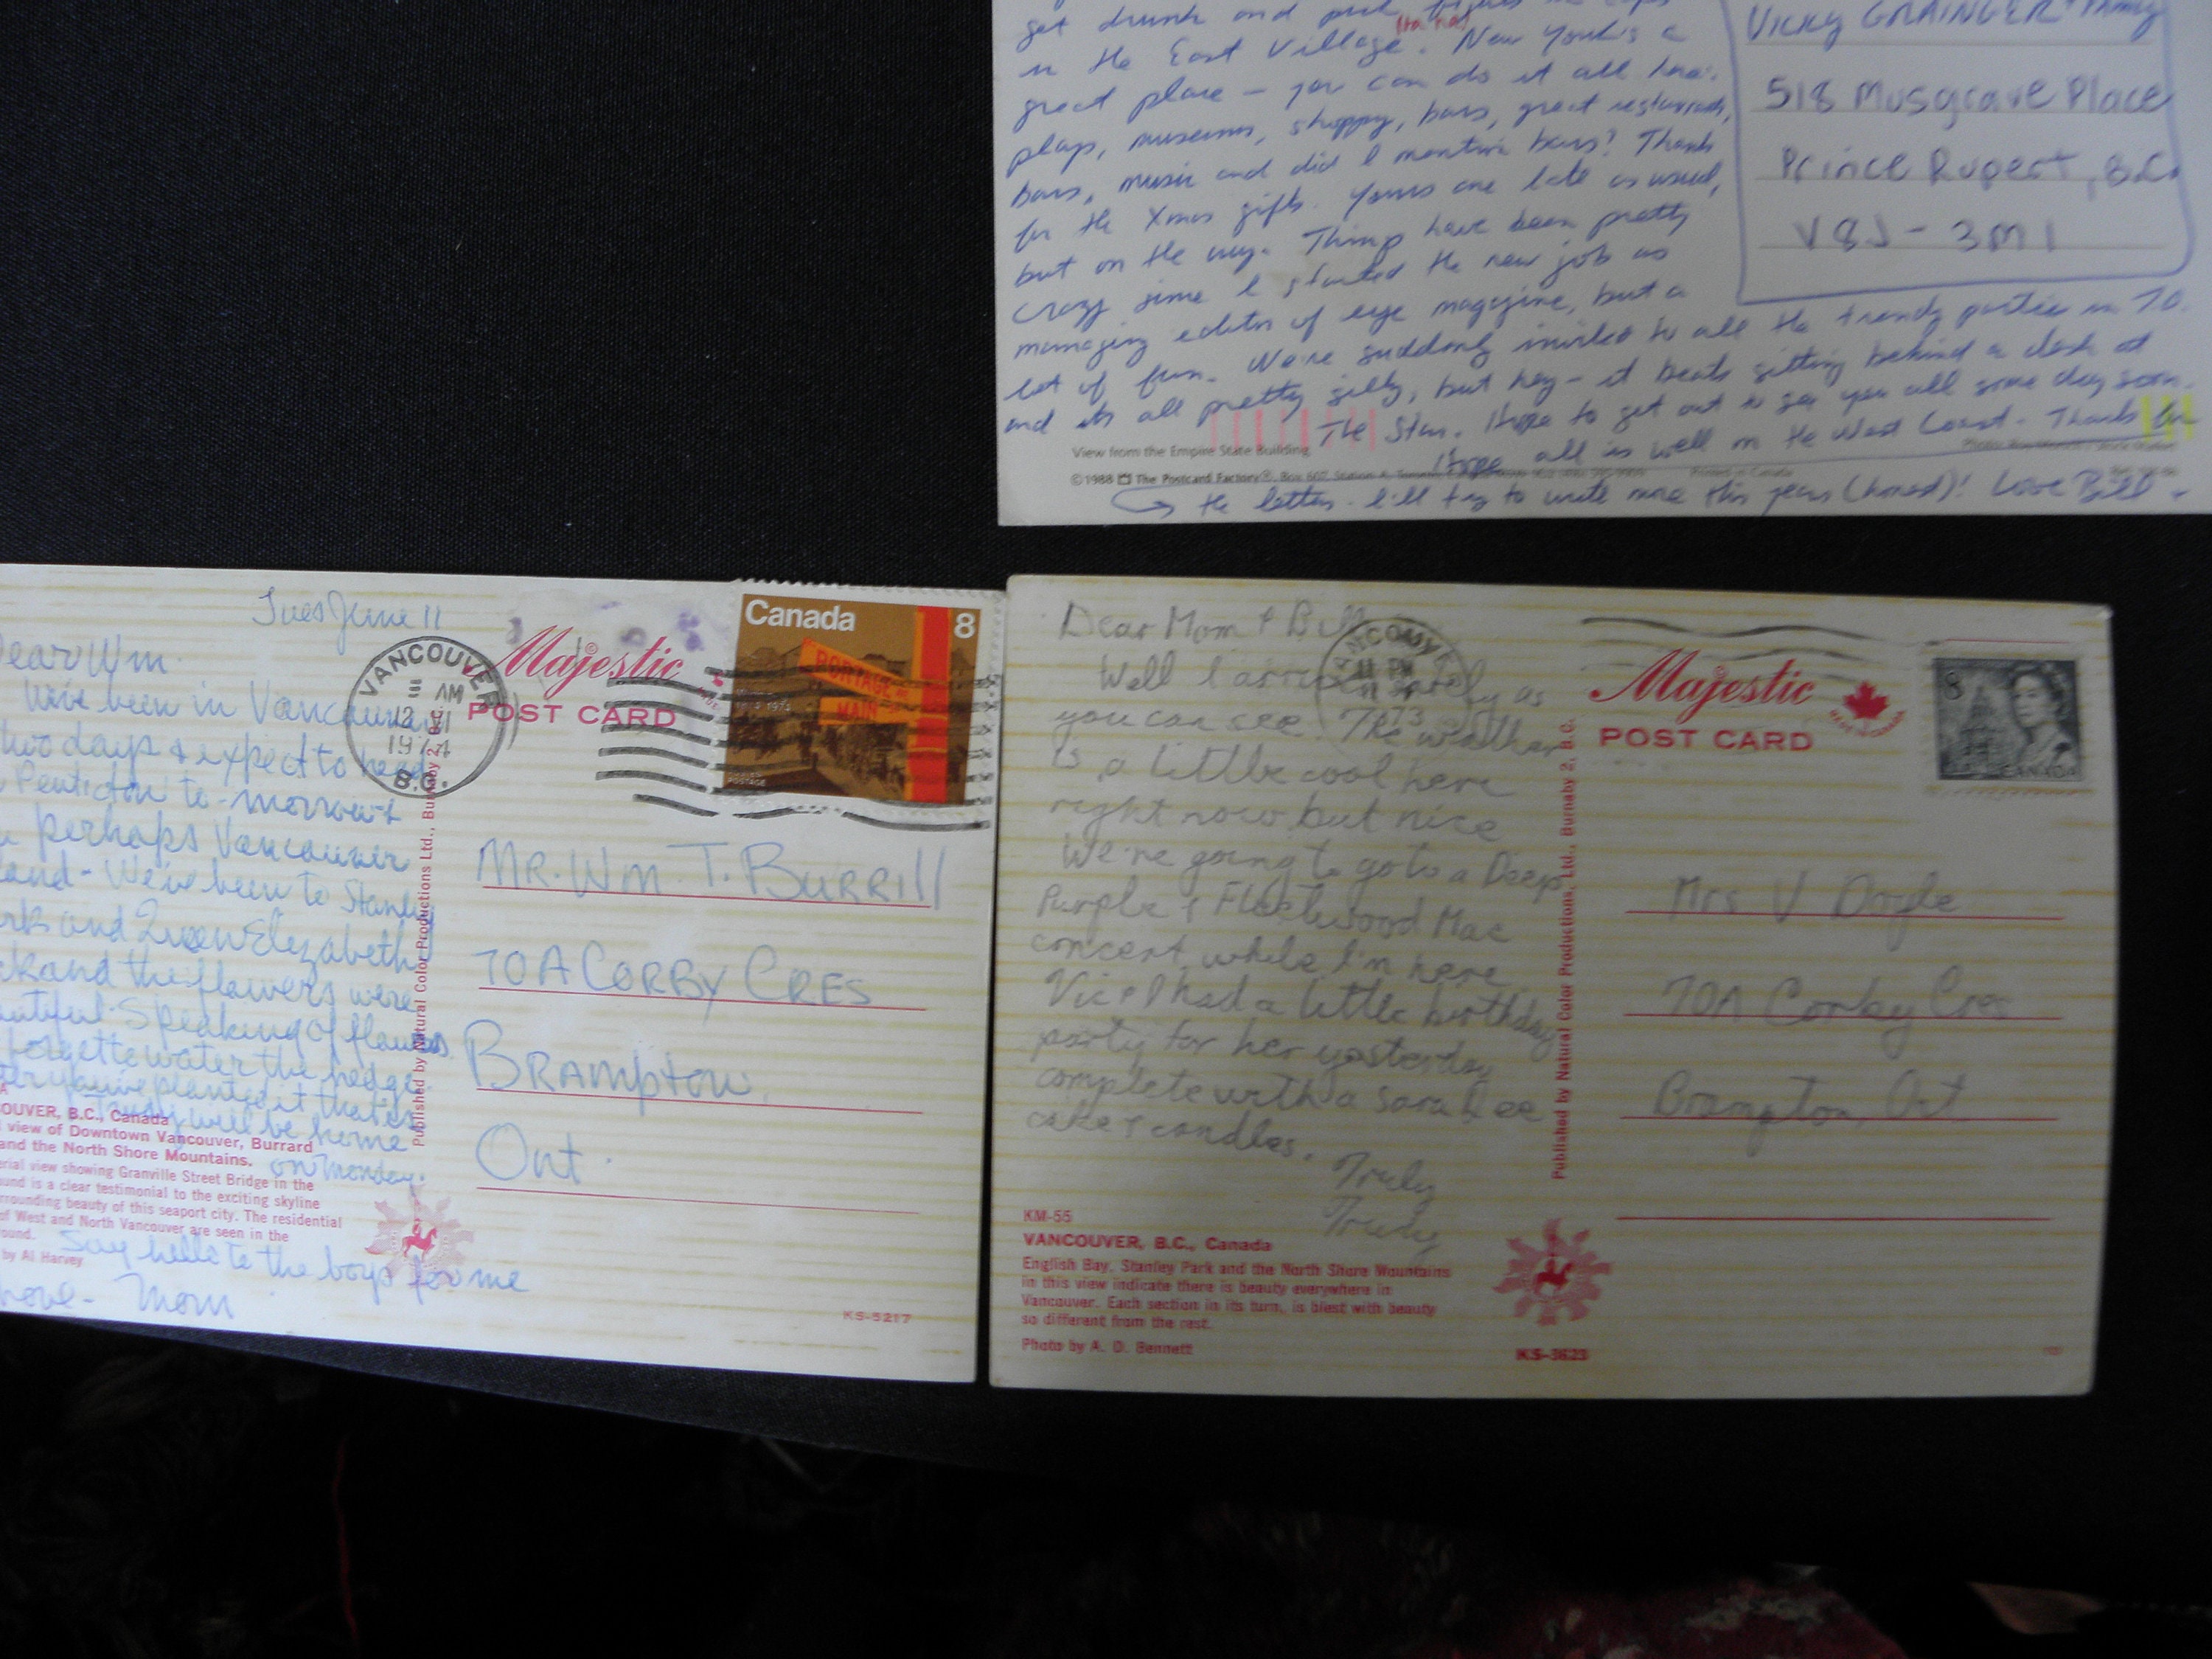 get drunk and pick fights in
(Ha ha)
in the East Village. New York's a
great place - you can do it all here:
plays, museums, shopping, bars, great restaurants,
bars, music and did I mention bars? Thanks
for the Xmas gifts. Yours are late as usual,
but on the way. Things have been pretty
crazy since I started the new job as
managing editor of eye magazine, but a
lot of fun. We're suddenly invited to all the trendy parties in T.O.
and its all pretty silly, but hey - it beats sitting behind a desk at
The Star. Hope to get out to see you all some day soon.
Hope all is well on the West Coast. Thanks for
the letter. I'll try to write more this year (honest)! Love Bill
View from the Empire State Building
©1988 The Postcard Factory®, Box 607, Station A,
Vicky GRAINGER + Family
518 Musgrave Place
Prince Rupert, B.C.
V8J - 3M1
Tues June 11
Dear Wm.
We've been in Vancouver
two days & expect to head
Penticton to-morrow &
perhaps Vancouver
land - We've been to Stanley
and Queen Elizabeth
and the flowers were
Speaking of flowers
forget to water the hedge
you've planted it that is
will be home
on Monday.
Say hello to the boys for me
Love - Mom
OUVER, B.C., Canada
view of Downtown Vancouver, Burrard
and the North Shore Mountains.
erial view showing Granville Street Bridge in the
ound is a clear testimonial to the exciting skyline
rrounding beauty of this seaport city. The residential
of West and North Vancouver are seen in the
ound.
by Al Harvey
Published by Natural Color Productions Ltd., Burnaby 2, B.C.
VANCOUVER
AM
12 VI
1974
B.C.
Majestic
POST CARD
Canada 8
PORTAGE AVE
MAIN
POSTAGE
MR. Wm. T. BURRIll
70A CORBY CRES
BRAMPTON,
Ont.
KS-5217
Dear Mom & Bill
Well I arrived safely as
you can see. The weather
is a little cool here
right now but nice
We're going to go to a Deep
Purple & Fleetwood Mac
concert while I'm here
Vic & I had a little birthday
party for her yesterday
complete with a sara lee
cake & candles.
Truly
Trudy
73
KM-55
VANCOUVER, B.C., Canada
English Bay, Stanley Park and the North Shore Mountains
in this view indicate there is beauty everywhere in
Vancouver. Each section in its turn, is blest with beauty
so different from the rest.
Photo by A. D. Bennett
KS-3623
Published by Natural Color Productions, Ltd., Burnaby 2, B.C.
Majestic
POST CARD
MADE IN CANADA
8
CANADA
Mrs V Doyle
70A Corby Cres
Brampton, Ont